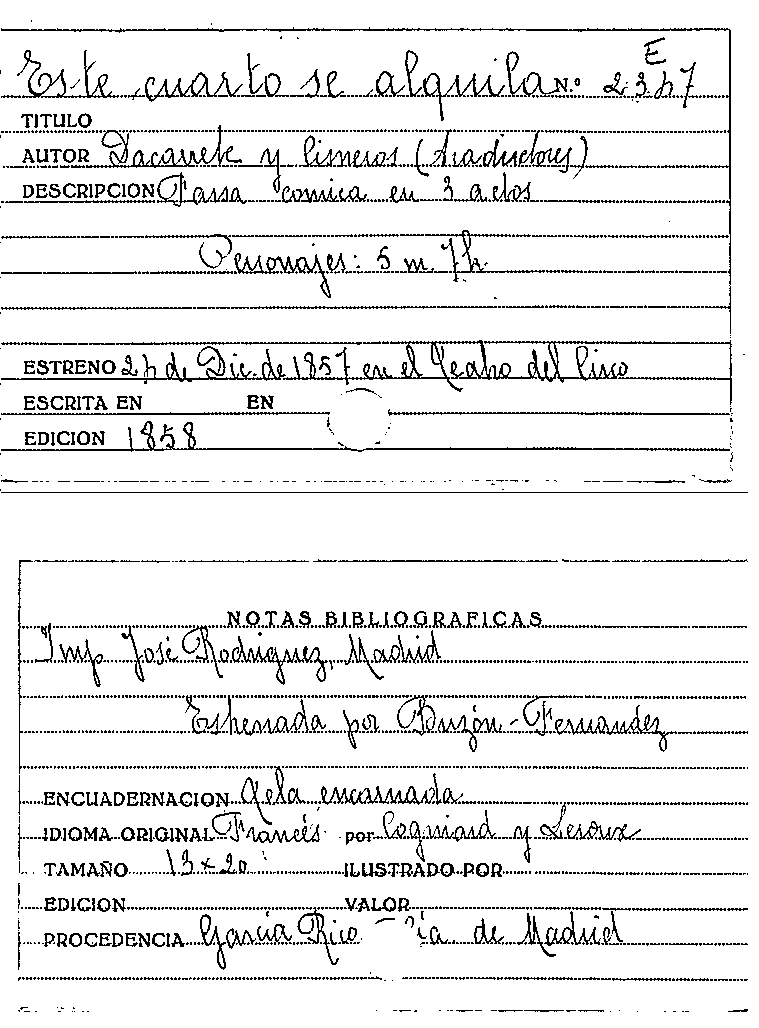 E
Este cuarto se alquila N.º 2347
TITULO
AUTOR Dacarrete y Cisneros (traductores)
DESCRIPCION Farsa comica en 3 actos
Personajes: 5 m. 7 h.
ESTRENO 24 de Dic. de 1857 en el Teatro del Circo
ESCRITA EN EN
EDICION 1858
NOTAS BIBLIOGRAFICAS
Imp José Rodriguez, Madrid
Estrenada por Buzón-Fernandez
ENCUADERNACION Tela encarnada
IDIOMA ORIGINAL Francés por Cogniard y Leroux
TAMAÑO 13 x 20 ILUSTRADO POR
EDICION VALOR
PROCEDENCIA García Rico de Madrid